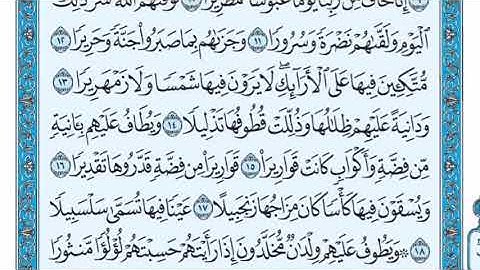 إِنَّا نَخَافُ مِن رَّبِّنَا يَوْمًا عَبُوسًا قَمْطَرِيرًا ١٠ فَوَقَىٰهُمُ ٱللَّهُ شَرَّ ذَٰلِكَ
ٱلْيَوْمِ وَلَقَّىٰهُمْ نَضْرَةً وَسُرُورًا ١١ وَجَزَىٰهُم بِمَا صَبَرُوا۟ جَنَّةً وَحَرِيرًا ١٢
مُّتَّكِـِٔينَ فِيهَا عَلَى ٱلْأَرَآئِكِ ۖ لَا يَرَوْنَ فِيهَا شَمْسًا وَلَا زَمْهَرِيرًا ١٣
وَدَانِيَةً عَلَيْهِمْ ظِلَٰلُهَا وَذُلِّلَتْ قُطُوفُهَا تَذْلِيلًا ١٤ وَيُطَافُ عَلَيْهِم بِـَٔانِيَةٍ
مِّن فِضَّةٍ وَأَكْوَابٍ كَانَتْ قَوَارِيرَا۠ ١٥ قَوَارِيرَا۟ مِن فِضَّةٍ قَدَّرُوهَا تَقْدِيرًا ١٦
وَيُسْقَوْنَ فِيهَا كَأْسًا كَانَ مِزَاجُهَا زَنجَبِيلًا ١٧ عَيْنًا فِيهَا تُسَمَّىٰ سَلْسَبِيلًا
١٨ ۞ وَيَطُوفُ عَلَيْهِمْ وِلْدَٰنٌ مُّخَلَّدُونَ إِذَا رَأَيْتَهُمْ حَسِبْتَهُمْ لُؤْلُؤًا مَّنثُورًا